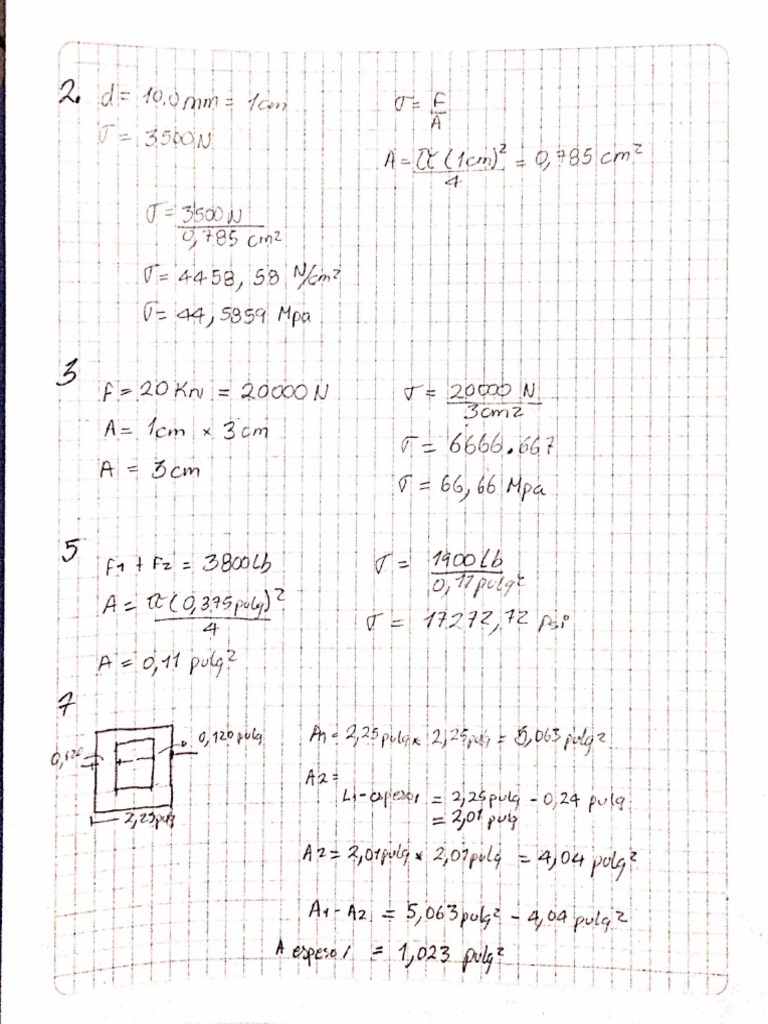 2. d = 10.0 mm = 1cm
σ = F/A
σ = 3500N
A = π (1cm)²/4 = 0,785 cm²
σ = 3500 N/0,785 cm2
σ = 4458,58 N/cm²
σ = 44,5859 Mpa
3
F = 20 KN = 20000 N
σ = 20000 N/3cm2
A = 1cm × 3 cm
σ = 6666.667
A = 3cm
σ = 66,66 Mpa
5
F1 + F2 = 3800Lb
σ = 1900Lb/0,11 pulg²
A = π (0,375pulg)²/4
σ = 17272,72 psi
A = 0,11 pulg²
7
0,120
0,120 pulg
2,25pulg
A1 = 2,25pulg × 2,25pulg = 5,063 pulg²
A2 =
L1 - espesor = 2,25pulg - 0,24 pulg
= 2,01 pulg
A2 = 2,01pulg × 2,01pulg = 4,04 pulg²
A1 - A2 = 5,063pulg² - 4,04 pulg²
A espesor = 1,023 pulg²